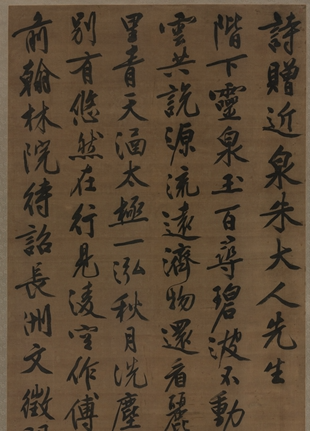 詩贈近泉朱大人先生
階下靈泉玉百尋碧波不動
雲共說源流遠濟物還看麗
里青天涵太極一泓秋月洗塵
別有悠然在行見淩空作傅
前翰林院待詔長洲文徵